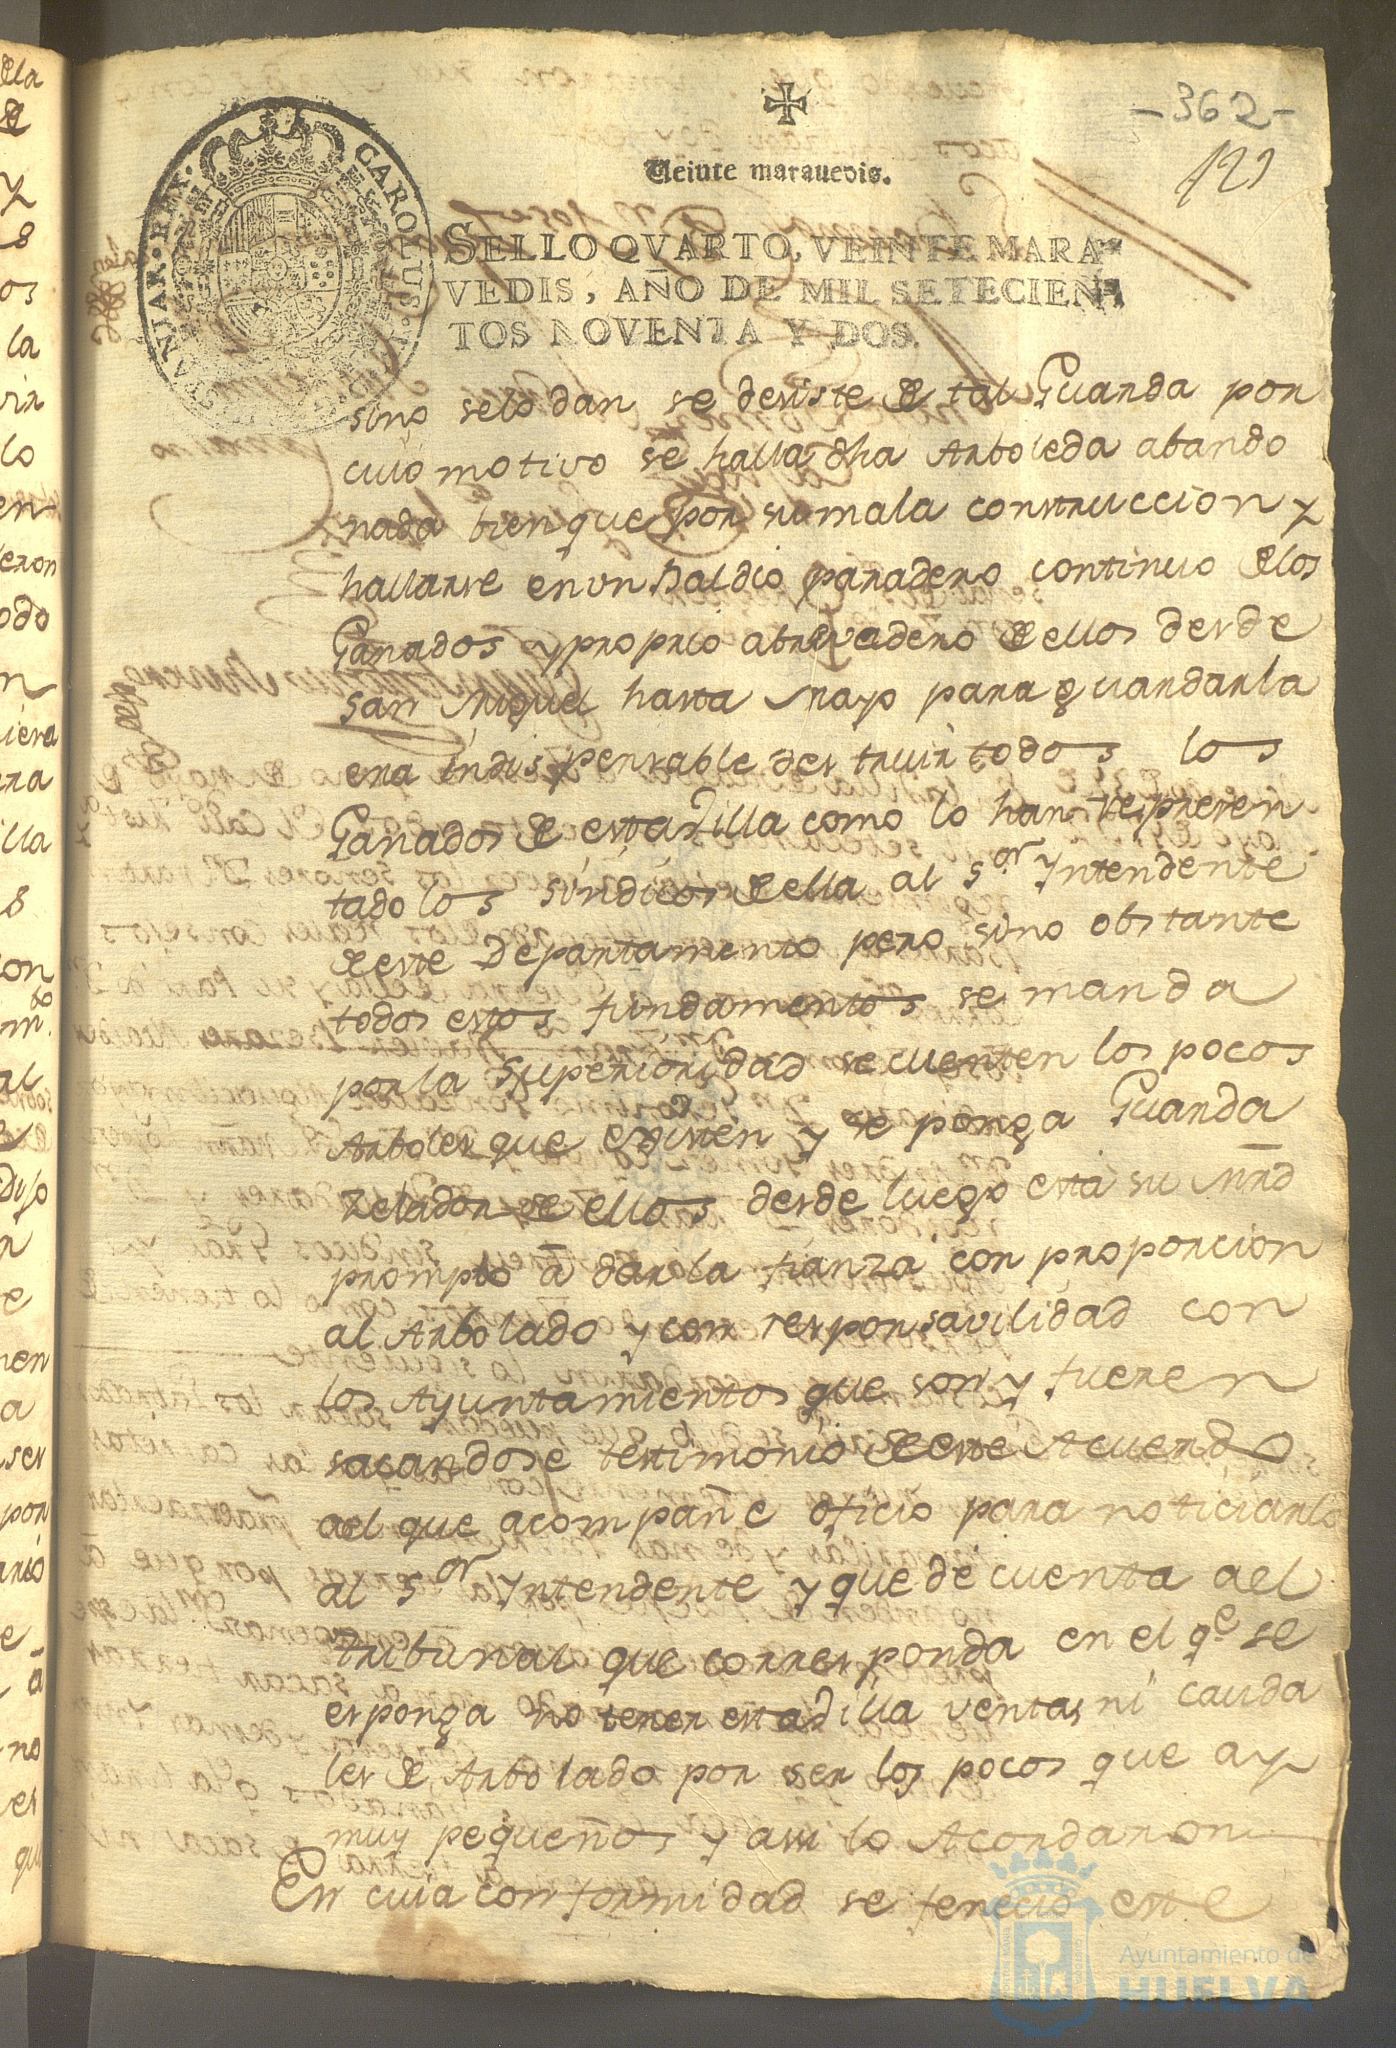 -362-
121
Veinte marauedis.
SELLO QVARTO, VEINTE MARA-
VEDIS, AÑO DE MIL SETECIEN-
TOS NOVENTA Y DOS.
CAROLUS IV HISPANIAR. REX.
sino selo dan se desiste de tal Guarda por
cuio motivo se halla dha Arboleda abando
nada bien que por su mala construccion y
hallarse en un baldio paradero continuo de los
Ganados y proprio abrevadero de ellos desde
San Miguel hasta Mayo para guardarla
era indispensable destruir todos los
Ganados de esta Villa como lo han represen
tado los sindicos de ella al Sor Yntendente
de este Departamento pero sino obstante
todos estos fundamentos se manda
por la Superioridad se cuenten los pocos
Arboles que existen y se ponga Guarda
Zelador de ellos desde luego esta su Mrd
prompto â dar la fianza con proporcion
al Arbolado y con responsavilidad con
los Ayuntamientos que son y fueren
sacandose testimonio de este Acuerdo
ael que acompañe oficio para noticiarlo
al Sor Yntendente y que dé cuenta ael
tribunal que corresponda en el qe se
esponga no tener esta Villa ventas ni cauda
les de Arbolado por ser los pocos que ay
muy pequeños y assi lo Acordaron
En cuia conformidad se fenecio este
Ayuntamiento de
HUELVA